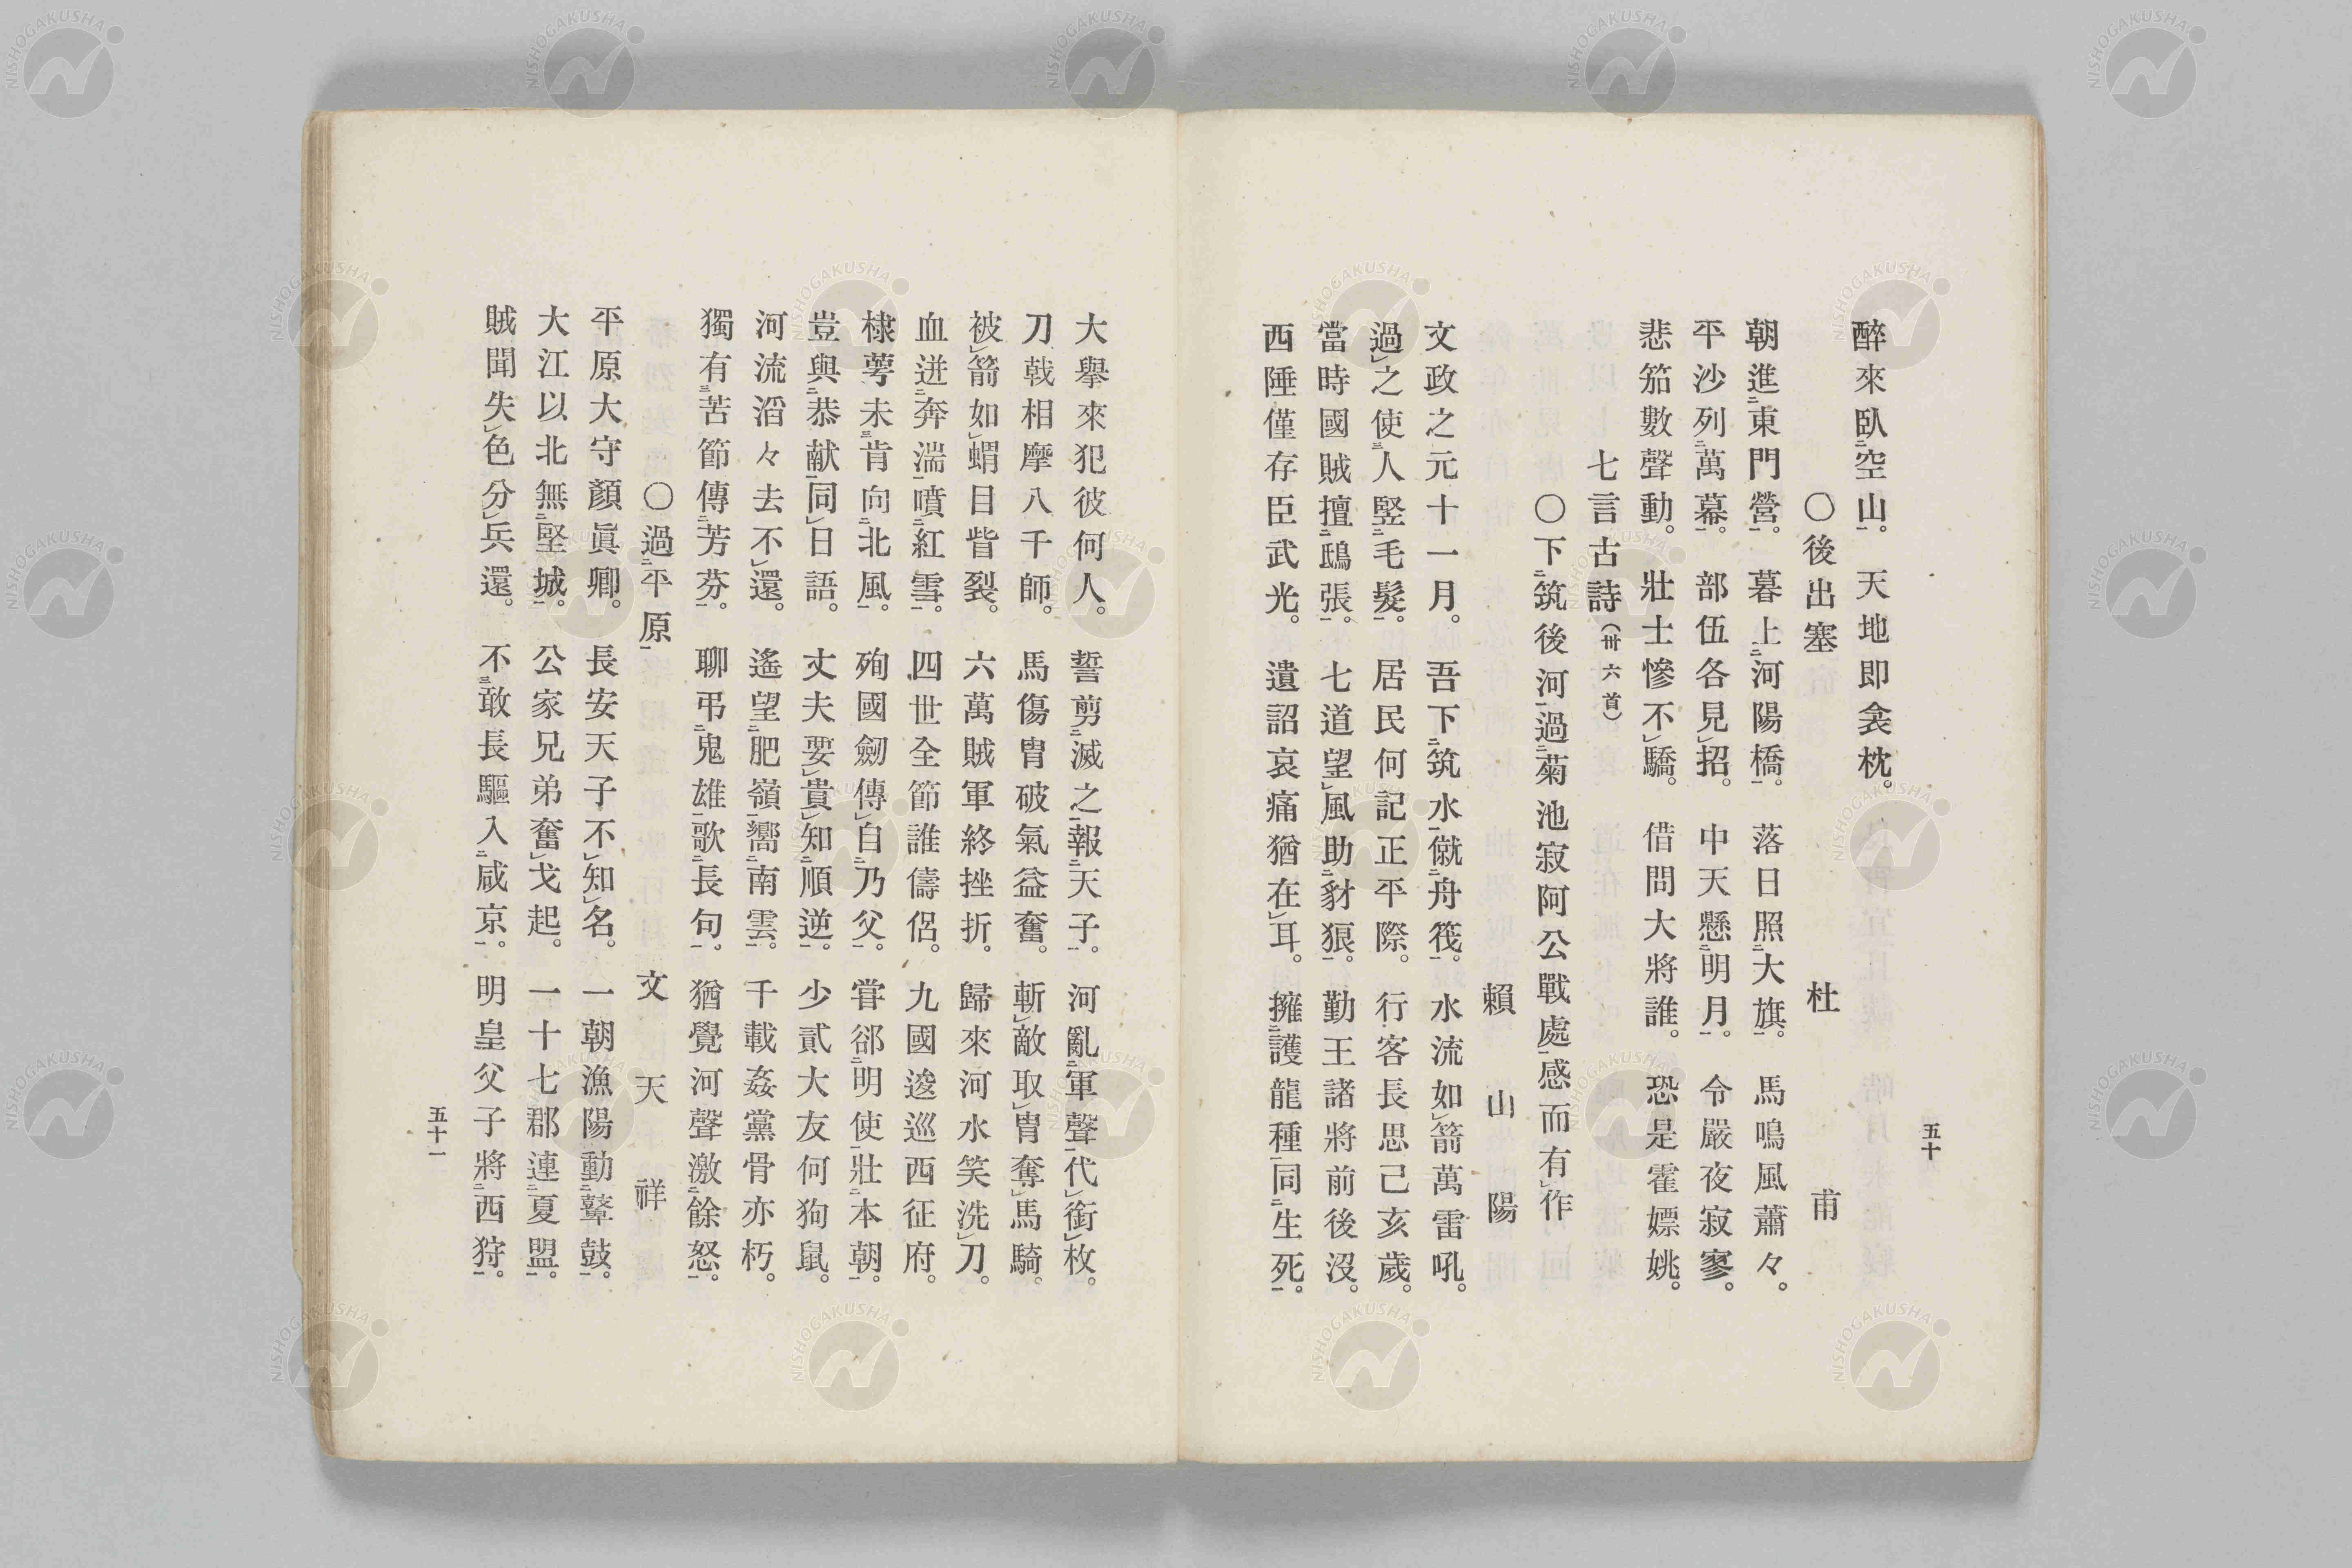 五十
醉來臥㆓空山㆒。天地即衾枕。
○後出塞　杜甫
朝進㆓東門營㆒。暮上㆓河陽橋㆒。落日照㆓大旗㆒。馬鳴風蕭々。
平沙列㆓萬幕㆒。部伍各見㆑招。中天懸㆓明月㆒。令嚴夜寂寥。
悲笳數聲動。壯士慘不㆑驕。借問大將誰。恐是霍嫖姚。
七言古詩（卅六首）
○下㆓筑後河㆒過㆓菊池寂阿公戰處㆒感而有㆑作
賴山陽
文政之元十一月。吾下㆓筑水㆒僦㆓舟筏㆒。水流如㆑箭萬雷吼。
過㆑之使㆔人竪㆓毛髮㆒。居民何記正平際。行客長思己亥歲。
當時國賊擅㆓鴟張㆒。七道望㆑風助㆓豺狼㆒。勤王諸將前後沒。
西陲僅存臣武光。遺詔哀痛猶在㆑耳。擁㆓護龍種㆒同㆓生死㆒。
大擧來犯彼何人。誓剪㆓滅之㆒報㆓天子㆒。河亂㆓軍聲㆒代㆑銜㆑枚。
刀戟相摩八千師。馬傷胄破氣益奮。斬㆑敵取㆑胄奪㆑馬騎。
被㆑箭如㆑蝟目眥裂。六萬賊軍終挫折。歸來河水笑洗㆑刀。
血迸㆓奔湍㆒噴㆓紅雪㆒。四世全節誰儔侶。九國逡巡西征府。
棣萼未㆔肯向㆓北風㆒。殉國劒傳㆑自㆓乃父㆒。甞郤㆓明使㆒壯㆓本朝㆒。
豈與㆓恭献㆒同㆑日語。丈夫要㆑貴㆑知㆓順逆㆒。少貳大友何狗鼠。
河流滔々去不㆑還。遙望㆓肥嶺㆒嚮㆓南雲㆒。千載姦黨骨亦朽。
獨有㆔苦節傳㆓芳芬㆒。聊弔㆓鬼雄㆒歌㆓長句㆒。猶覺河聲激㆓餘怒㆒。
○過㆓平原㆒　文天祥
平原大守顏眞卿。長安天子不㆑知㆑名。一朝漁陽動㆓鼙鼓㆒。
大江以北無㆓堅城㆒。公家兄弟奮㆑戈起。一十七郡連㆓夏盟㆒。
賊聞失㆑色分㆑兵還。不㆔敢長驅入㆓咸京㆒。明皇父子將㆓西狩㆒。
五十一